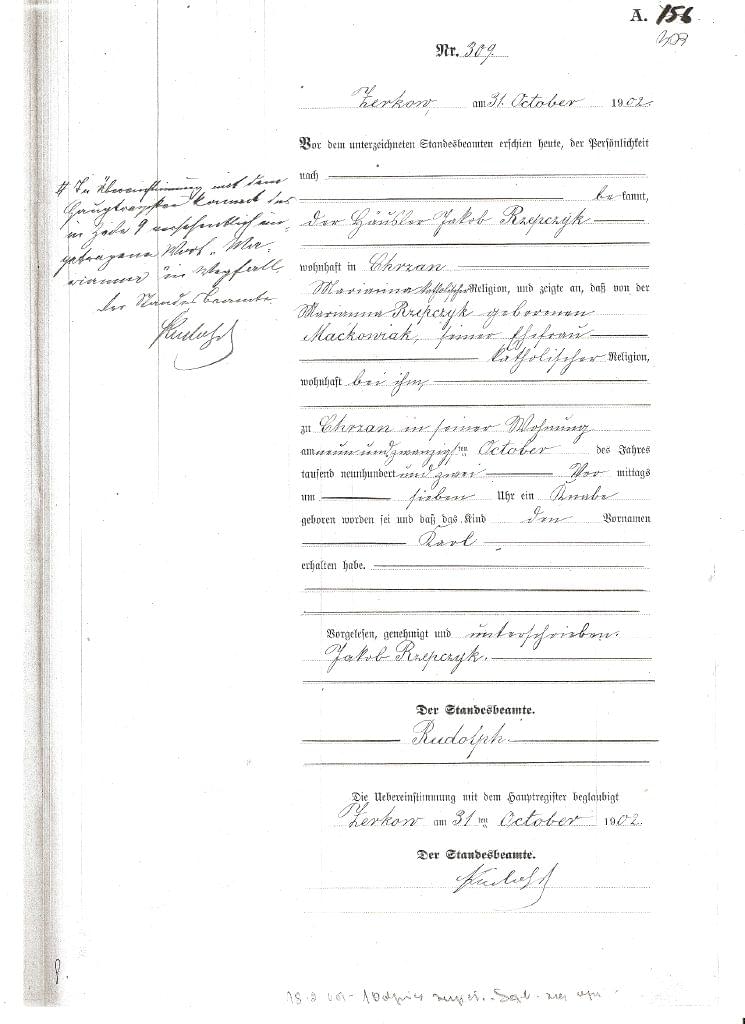 A. 156
Nr. 309.
Zerkow, am 31. October 1902.
Vor dem unterzeichneten Standesbeamten erschien heute, der Persönlichkeit
nach
be kannt,
der Häusler Jakob Rzepczyk
wohnhaft in Chrzan
Marianna katholischer Religion, und zeigte an, daß von der
Marianna Rzepczyk geborenen
Maćkowiak, seiner Ehefrau
katholischer Religion,
wohnhaft bei ihm,
zu Chrzan in seiner Wohnung
am neun und zwanzigsten October des Jahres
tausend neunhundert und zwei Vor mittags
um sieben Uhr ein Knabe
geboren worden sei und daß das Kind den Vornamen
Karl
erhalten habe.
Vorgelesen, genehmigt und unterschrieben.
Jakob Rzepczyk.
Der Standesbeamte.
Rudolph.
Die Uebereinstimmung mit dem Hauptregister beglaubigt
Zerkow am 31 ten October 1902.
Der Standesbeamte.
Rudolph
# In Übereinstimmung mit dem
Hauptregister kommt das
in Zeile 9 versehentlich ein-
getragene Wort „Ma-
rianna" in Wegfall.
Der Standesbeamte
Rudolph